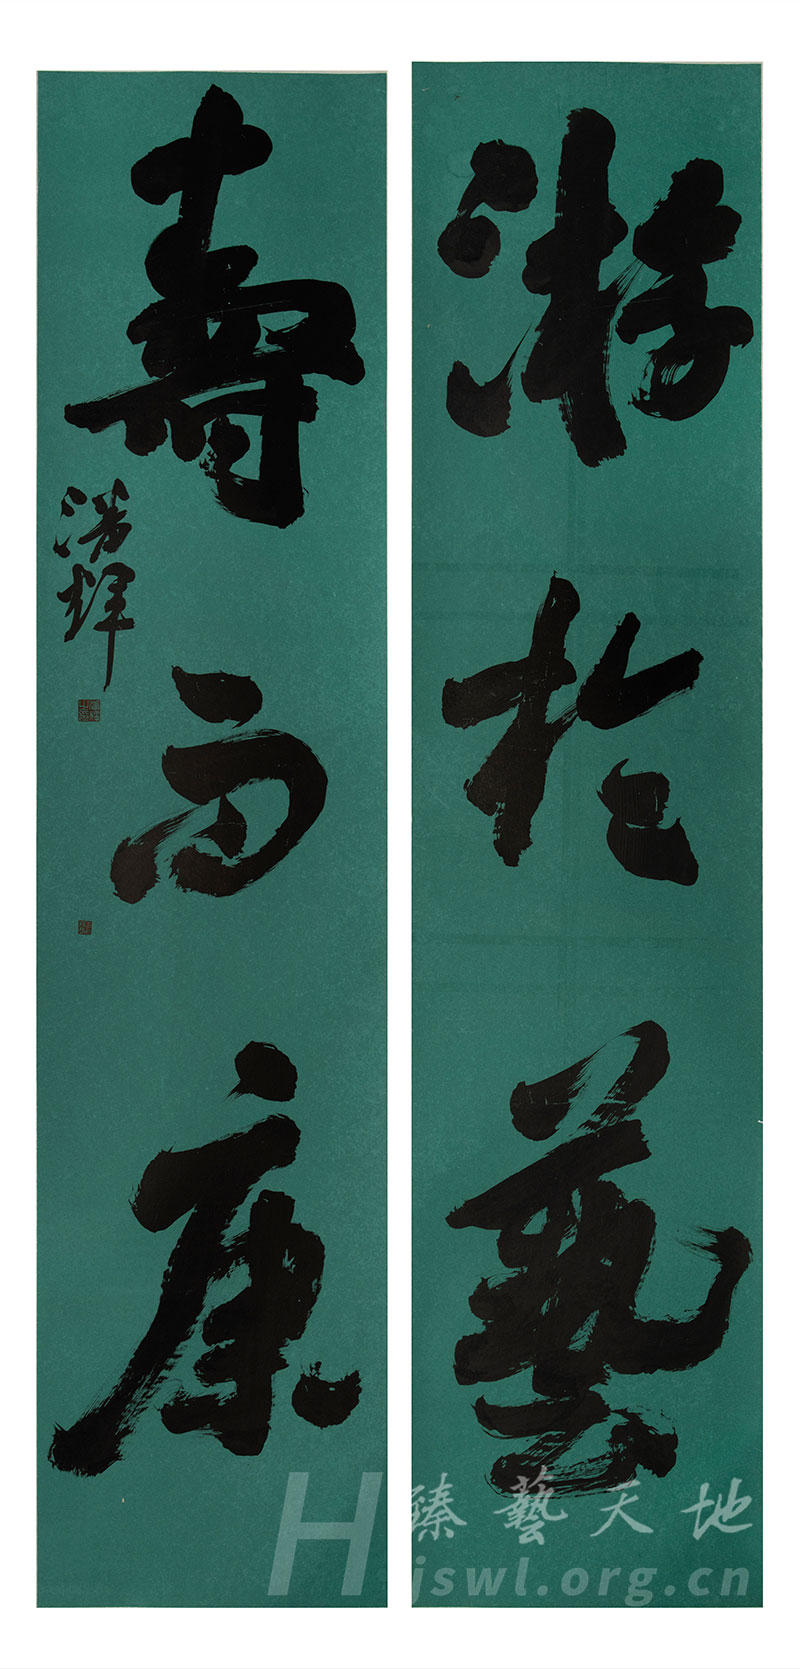 游於藝
壽而康
臻藝天地
H jswl.org.cn